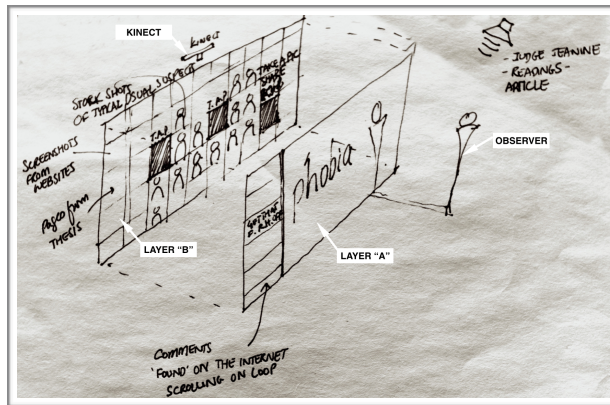 KINECT
KINECT
STOCK SHOTS
OF TYPICAL USUAL SUSPECTS
TAKE A PIC
SCREENSHOTS
FROM
WEBSITES
Pages from
THESIS
LAYER "B"
phobia
LAYER "A"
OBSERVER
- JUDGE JEANINE
- READINGS -
ARTICLE
COMMENTS
'FOUND' ON THE INTERNET
SCROLLING ON LOOP